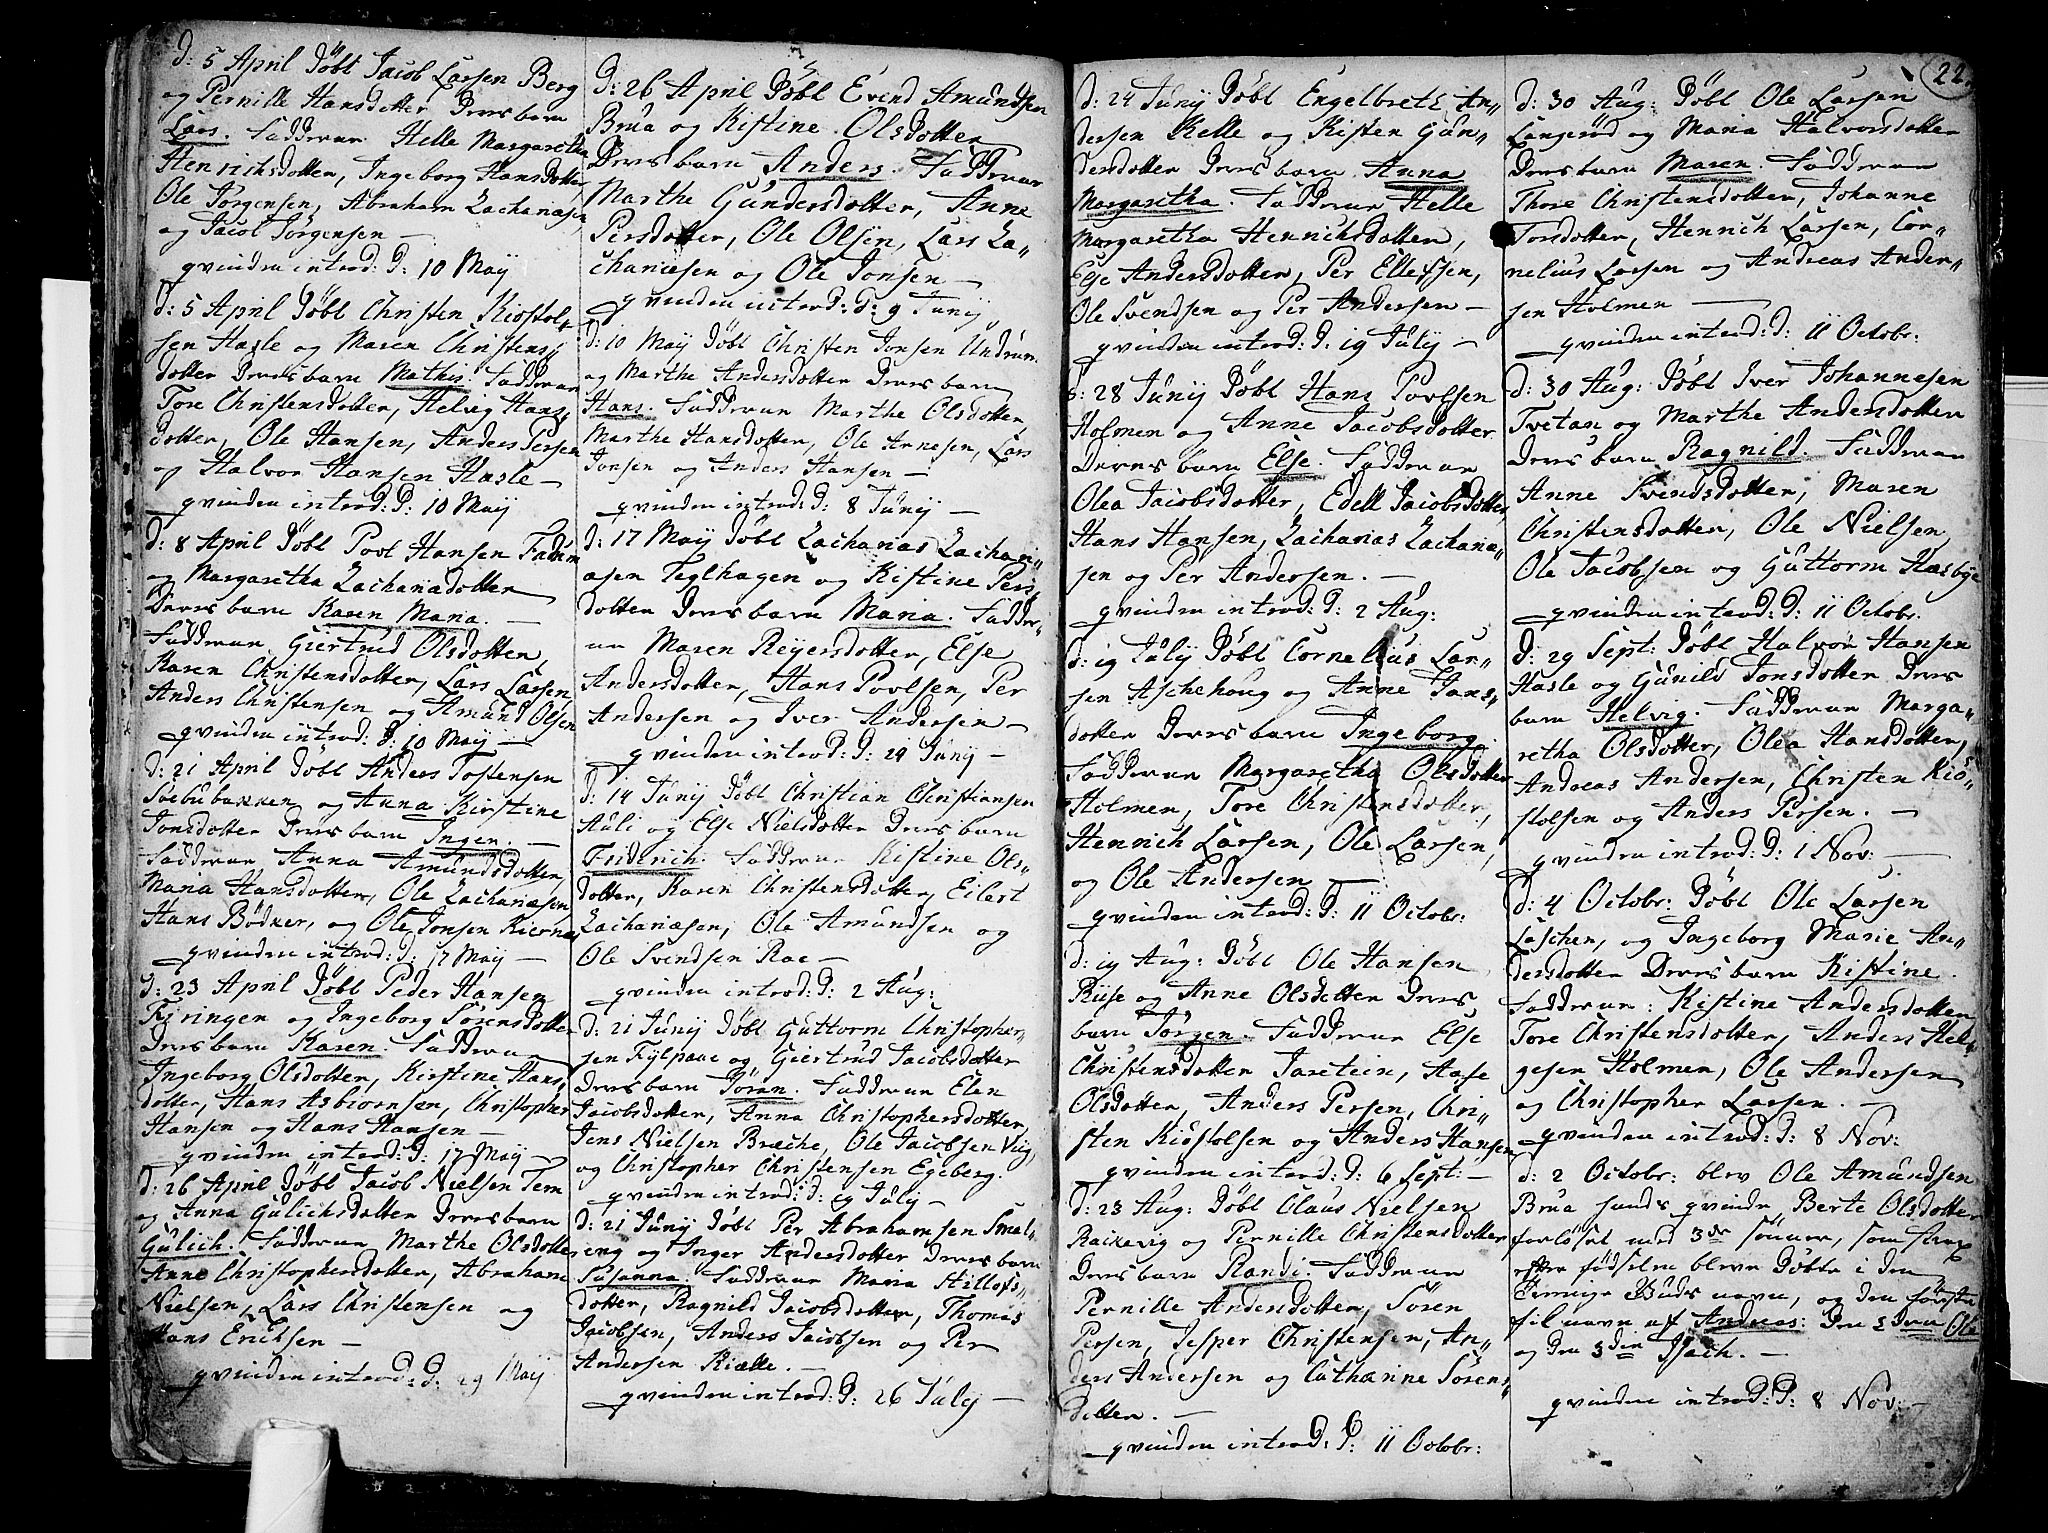 d: 5 April Döbt Jacob Larsen Berg
og Pernille Hansdotter Deres barn
Lars. Fadderne Helle Margaretha
Henrichsdotter, Ingeborg Hansdotter,
Ole Jörgensen, Abraham Zachariæsen
og Jacob Jörgensen —
qvinden introd: D: 10 Maÿ
D: 5 April Döbt Christen Kiöstol„
sen Hasle og Maren Christens„
dotter Deres barn Mathis. Fadderne
Tore Christensdotter, Helvig Hans„
dotter, Ole Hansen, Anders Persen
og Halvor Hansen Hasle —
qvinden introd: D: 10 Maÿ
d: 8 April Döbt Povl Hansen Fadum
og Margaretha Zachariædotter
Deres barn Karen Maria. —
Fadderne Giertrud Olsdotter,
Karen Christensdotter, Lars Larsen,
Anders Christensen og Amund Olsen
qvinden introd: D: 10 Maÿ —
d: 21 April Döbt Anders Tostensen
Svebubakken og Anna Kirstine
Jonsdotter Deres barn Inger. —
Fadderne Anna Amundsdotter,
Maria Hansdotter, Ole Zachariæsen
Hans Bödker, og Ole Jonsen Kiernaas
qvinden introd: D: 17 Maÿ —
d: 23 April Döbt Peder Hansen
Fyringen og Ingeborg Sörensdotter
Deres barn Karen. Fadderne
Ingeborg Olsdotter, Kirstine Hans„
dotter, Hans Asbiörnsen, Christopher
Hansen og Hans Hansen —
qvinden introd: D: 17 Maÿ —
d: 26 April Döbt Jacob Nielsen Tem
og Anna Gulichsdotter Deres barn
Gulich. Fadderne Marthe Olsdotter
Anne Christophersdotter, Abraham
Nielsen, Lars Christensen og
Hans Ericksen —
qvinden introd: D: 29 Maÿ
D: 26 April Döbt Evend Amundsen
Brua og Kistine Olsdotter
Deres barn Anders. Fadderne
Marthe Gundersdotter, Anne
Persdotter, Ole Olsen, Lars Za„
chariæsen og Ole Jonsen —
qvinden introd: D: 9 Junÿ
d: 10 Maÿ Döbt Christen Jonsen Undrum
og Marthe Andersdotter Deres barn
Hans. Fadderne Marthe Olsdotter,
Marthe Hansdotter, Ole Arnesen, Lars
Jonsen og Anders Hansen —
qvinden introd: D: 8 Junÿ —
d: 17 Maÿ Döbt Zacharias Zachari„
æsen Teglhagen og Kistine Pers„
dotter Deres barn Maria. Fadder„
ne Maren Reÿersdotter, Else
Andersdotter, Hans Povlsen, Per
Andersen og Iver Andersen —
qvinden introd: D: 24 Junÿ —
d: 14 Junÿ Döbt Christian Christiansen
Auli og Else Nielsdotter Deres barn
Friderich. Fadderne Kistine Ols„
dotter, Karen Christensdotter, Eilert
Zachariæsen, Ole Amundsen og
Ole Svendsen Roe —
qvinden introd: D: 2 Aug:
d: 21 Junÿ Döbt Guttorm Christopher„
sen Fylpaae og Giertrud Jacobsdotter
Deres barn Jören. Fadderne Elen
Jacobsdotter, Anna Christophersdotter,
Jens Nielsen Bræche, Ole Jacobsen Viig,
og Christopher Christensen Egeberg.
qvinden introd: d: 19 Julÿ —
d: 21 Junÿ Döbt Per Abrahamsen Smal„
reng og Inger Andersdotter Deres barn
Susanna. Fadderne Maria Hillofs„
dotter, Ragnild Jacobsdotter, Thomas
Jacobsen, Anders Jacobsen og Per
Andersen Kiælle. —
qvinden introd: D: 26 Julÿ —
d: 24 Junÿ Döbt Engelbreth An„
dersen Kelle og Kisten Gun„
dersdotter Deres barn Anna
Margaretha. Fadderne Helle
Margaretha Henrichsdotter,
Else Andersdotter, Per Ellefsen,
Ole Svendsen og Per Andersen —
qvinden introd: D: 19 Julÿ —
d: 28 Junÿ Döbt Hans Povlsen
Holmen og Anne Jacobsdotter
Deres barn Else. Fadderne
Olea Jacobsdotter, Edell Jacobsdotter,
Hans Hansen, Zacharias Zachariæ„
sen og Per Andersen. —
qvinden introd: D: 2 Aug:
d: 19 Julÿ Döbt Cornelius Lar„
sen Aschehoug og Anne Hans„
dotter Deres barn Ingeborg.
Fadderne Margaretha Olsdotter
Holmen, Tore Christensdotter,
Henrich Larsen, Ole Larsen,
og Ole Andersen —
qvinden introd: D: 11 Octobr:
d: 19 Aug: Döbt Ole Hansen
Riise og Anne Olsdotter Deres
barn Jörgen. Fadderne Else
Christensdotter Jarstein, Aase
Olsdotter, Anders Persen, Chri„
sten Kiöstolsen og Anders Hansen
qvinden introd: D: 6 Sept: —
d: 23 Aug: Döbt Claus Nielsen
Rackevig og Pernille Christensdotter
Deres barn Randi. Fadderne
Pernille Andersdotter, Sören
Persen, Jesper Christensen, An„
ders Andersen og Cathærine Sörens„
dotter. —
qvinden introd: D: 11 Octobr:
22.
d: 30 Aug: Döbt Ole Larsen
Langeröd og Maria Halvorsdotter
Deres barn Maren. Fadderne
Thore Christensdotter, Johanne
Torsdotter, Henrich Larsen, Cor„
nelius Larsen og Andreas Ander„
sen Holmen —
qvinden introd: D: 11 Octobr:
d: 30 Aug: Döbt Iver Johannesen
Tvetan og Marthe Andersdotter
Deres barn Ragnild. Fadderne
Anne Svendsdotter, Maren
Christensdotter, Ole Nielsen,
Ole Jacobsen og Guttorm Hæsbye
qvinden introd: D: 11 Octobr.
D: 29 Sept: Döbt Halvor Hansen
Hasle og Gunild Jonsdotter Deres
barn Helvig. Fadderne Marga„
retha Olsdotter, Olea Hansdotter,
Andreas Andersen, Christen Kiö„
stolsen og Anders Persen. —
qvinden introd: D: 1 Nov: —
d: 4 Octobr: Döbt Ole Larsen
Laschen, og Ingeborg Marie An„
dersdotter Deres barn Kistine.
Fadderne: Kistine Andersdotter,
Tore Christensdotter, Anders Hel„
gesen Holmen, Ole Andersen
og Christopher Larsen. —
qvinden introd: D: 8 Nov:
d: 2 Octobr: blev Ole Amundsen
Brua hands qvinde Berte Olsdotter
forlöset med 3de sönner, som strax
efter födselen bleve döbte i den
Treenige Guds navn, og den förste
fik navn af Andreas: Den 2den Ole
og den 3die Isach. —
qvinden introd: D: 8 Nov: —